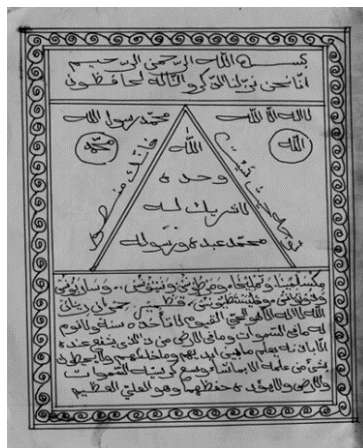 بسم الله الرحمن الرحيم
انا نحن نزلنا الذكر وانا له لحافظون
لا اله الا الله
محمد رسول الله
الله
محمد
توجه حيث شئت
فانك منصور
الله
وحده
لا شريك له
محمد عبده ورسوله
الله لا اله الا هو الحي القيوم لا تأخذه سنة ولا نوم
له ما في السموات وما في الارض من ذا الذي يشفع عنده
الا باذنه يعلم ما بين ايديهم وما خلفهم ولا يحيطون
بشيء من علمه الا بما شاء وسع كرسيه السموات
والارض ولا يؤده حفظهما وهو العلي العظيم